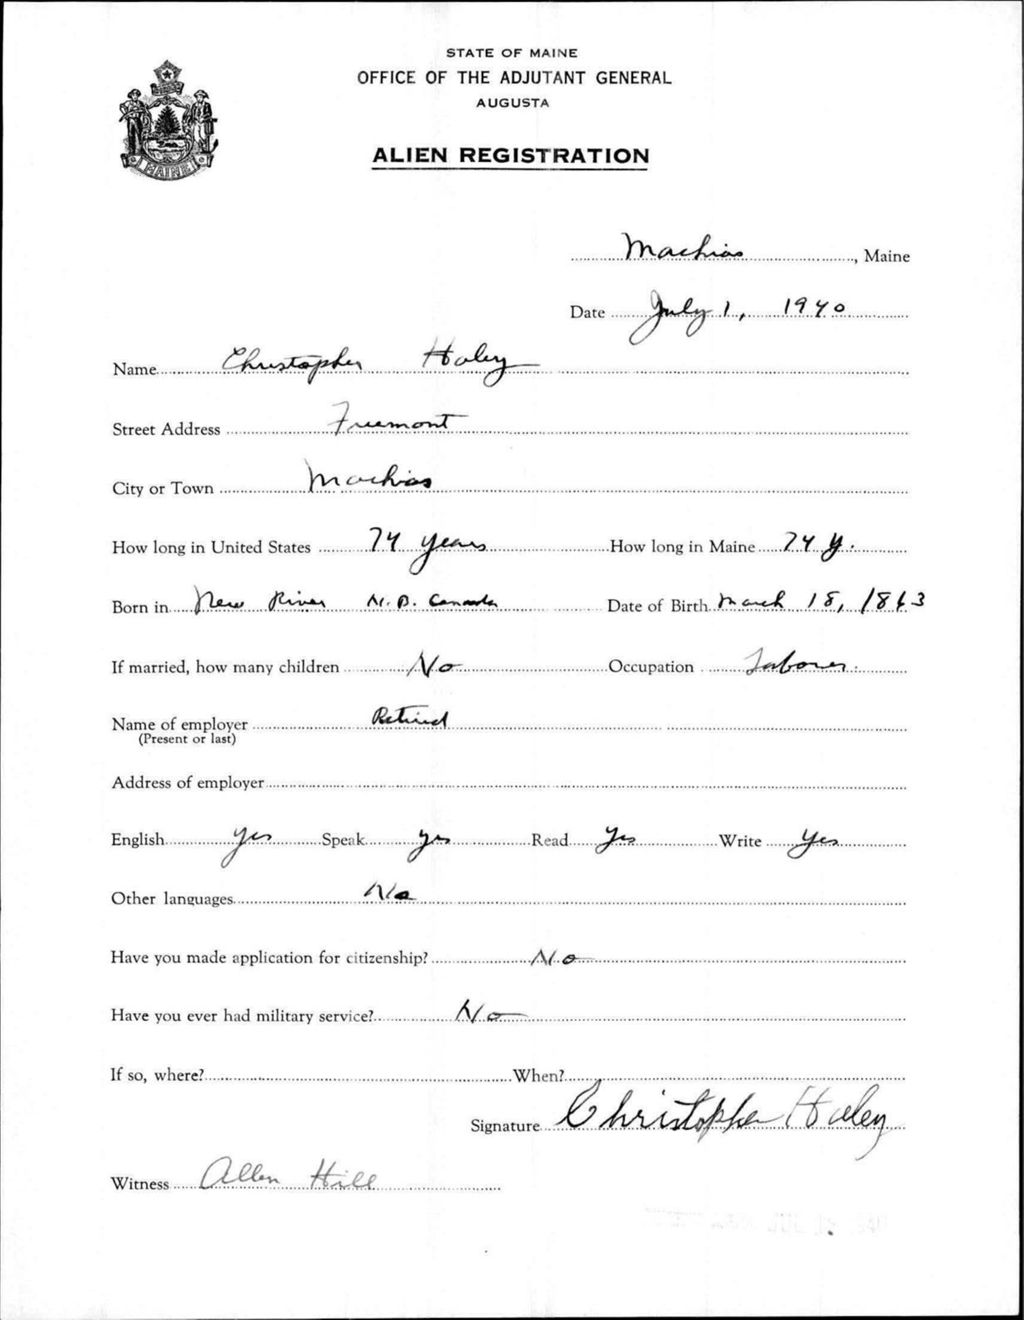 STATE OF MAINE
OFFICE OF THE ADJUTANT GENERAL
AUGUSTA
ALIEN REGISTRATION
MAINE
Machias, Maine
Date July 1, 1940
Name Christopher Haley
Street Address Freemont
City or Town Machias
How long in United States 74 years How long in Maine 74 y.
Born in New River N.B. Canada Date of Birth March 18, 1863
If married, how many children No Occupation Laborer.
Name of employer Retired
(Present or last)
Address of employer
English Yes Speak yes Read Yes Write Yes
Other languages No
Have you made application for citizenship? No
Have you ever had military service? No
If so, where? When?
Signature Christopher Haley
Witness Allen Hill